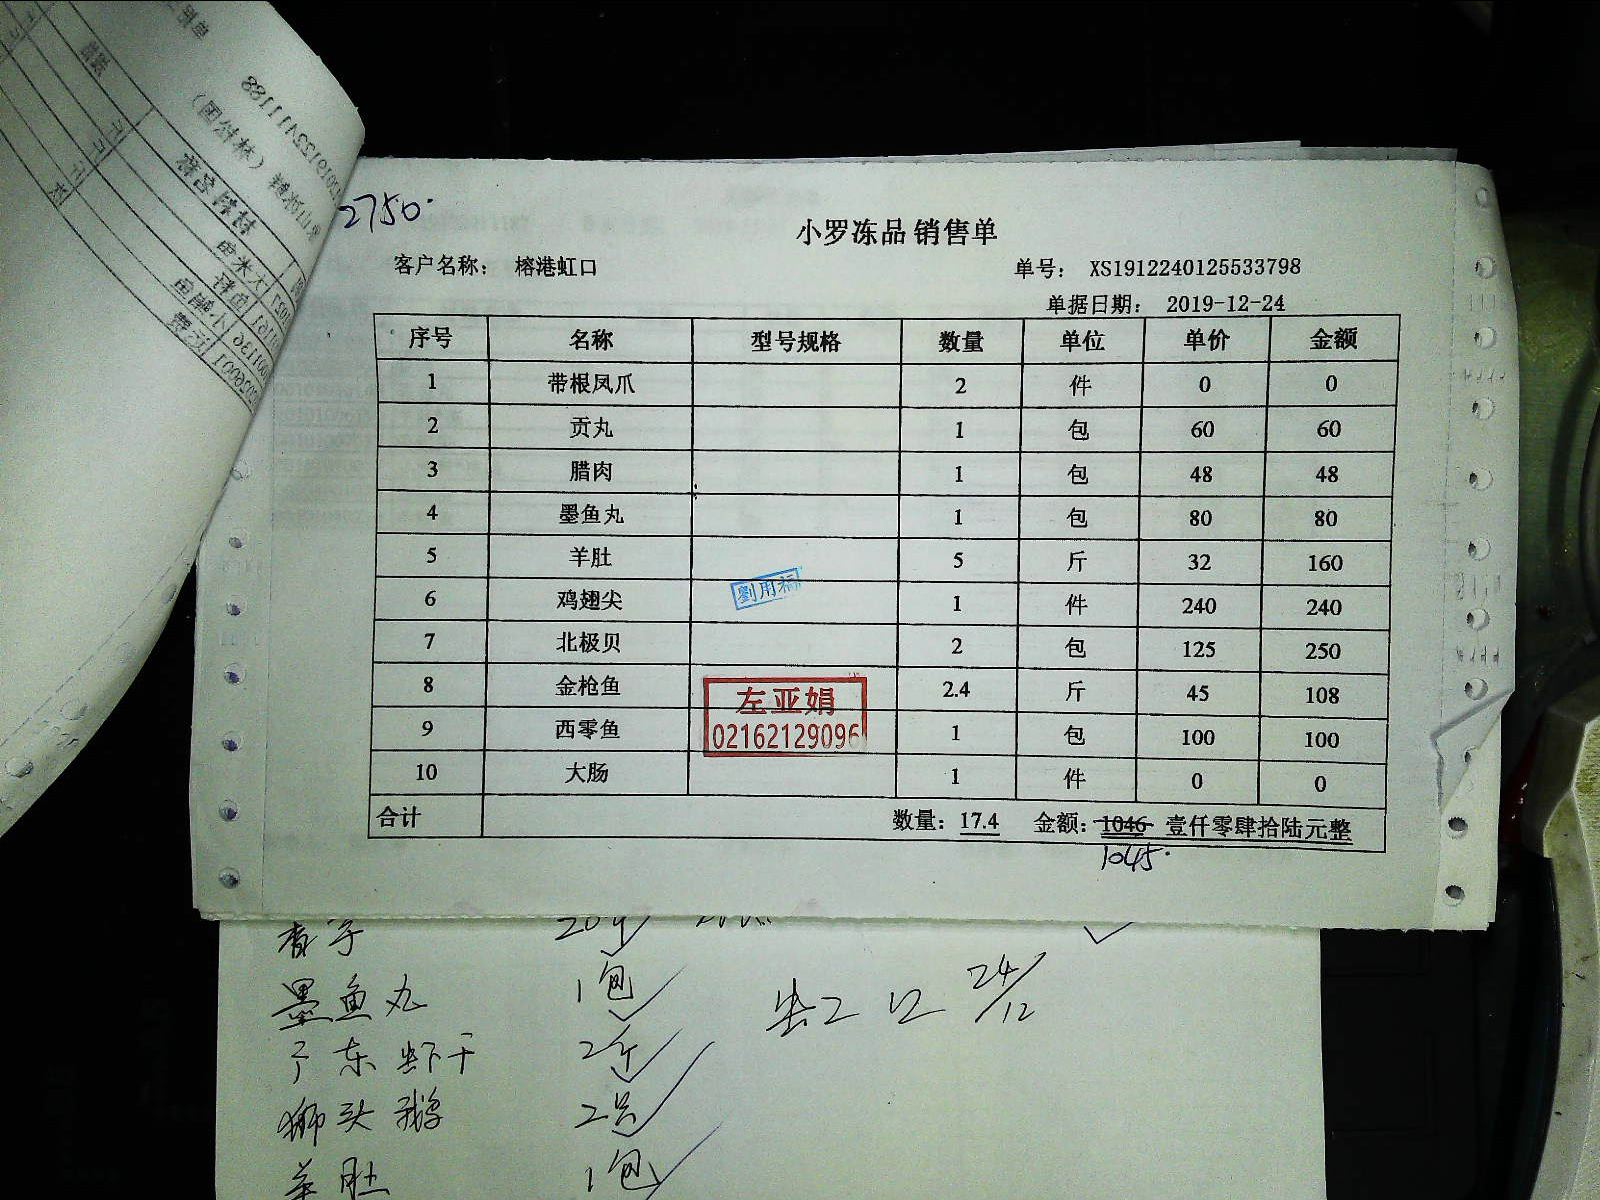 2750.
小罗冻品 销售单
客户名称： 榕港虹口
单号： XS1912240125533798
单据日期： 2019-12-24
序号 名称 型号规格 数量 单位 单价 金额
1 带根凤爪 2 件 0 0
2 贡丸 1 包 60 60
3 腊肉 1 包 48 48
4 墨鱼丸 1 包 80 80
5 羊肚 5 斤 32 160
6 鸡翅尖 1 件 240 240
7 北极贝 2 包 125 250
8 金枪鱼 2.4 斤 45 108
9 西零鱼 1 包 100 100
10 大肠 1 件 0 0
劉用福
左亚娟
02162129096
合计 数量：17.4 金额：1046 壹仟零肆拾陆元整
1045.
墨鱼丸 1包
虹口 24/12
广东虾干 2斤
狮头鹅 2只
羊肚 1包